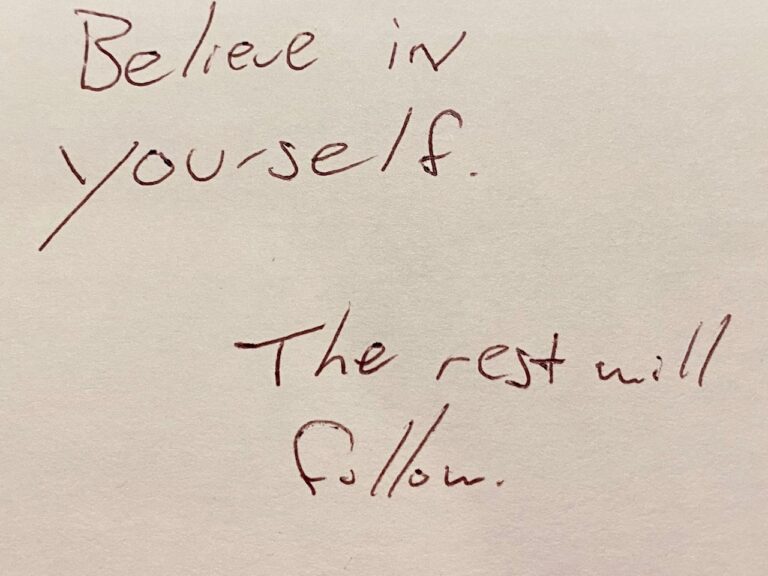 Believe in
yourself.
The rest will
follow.